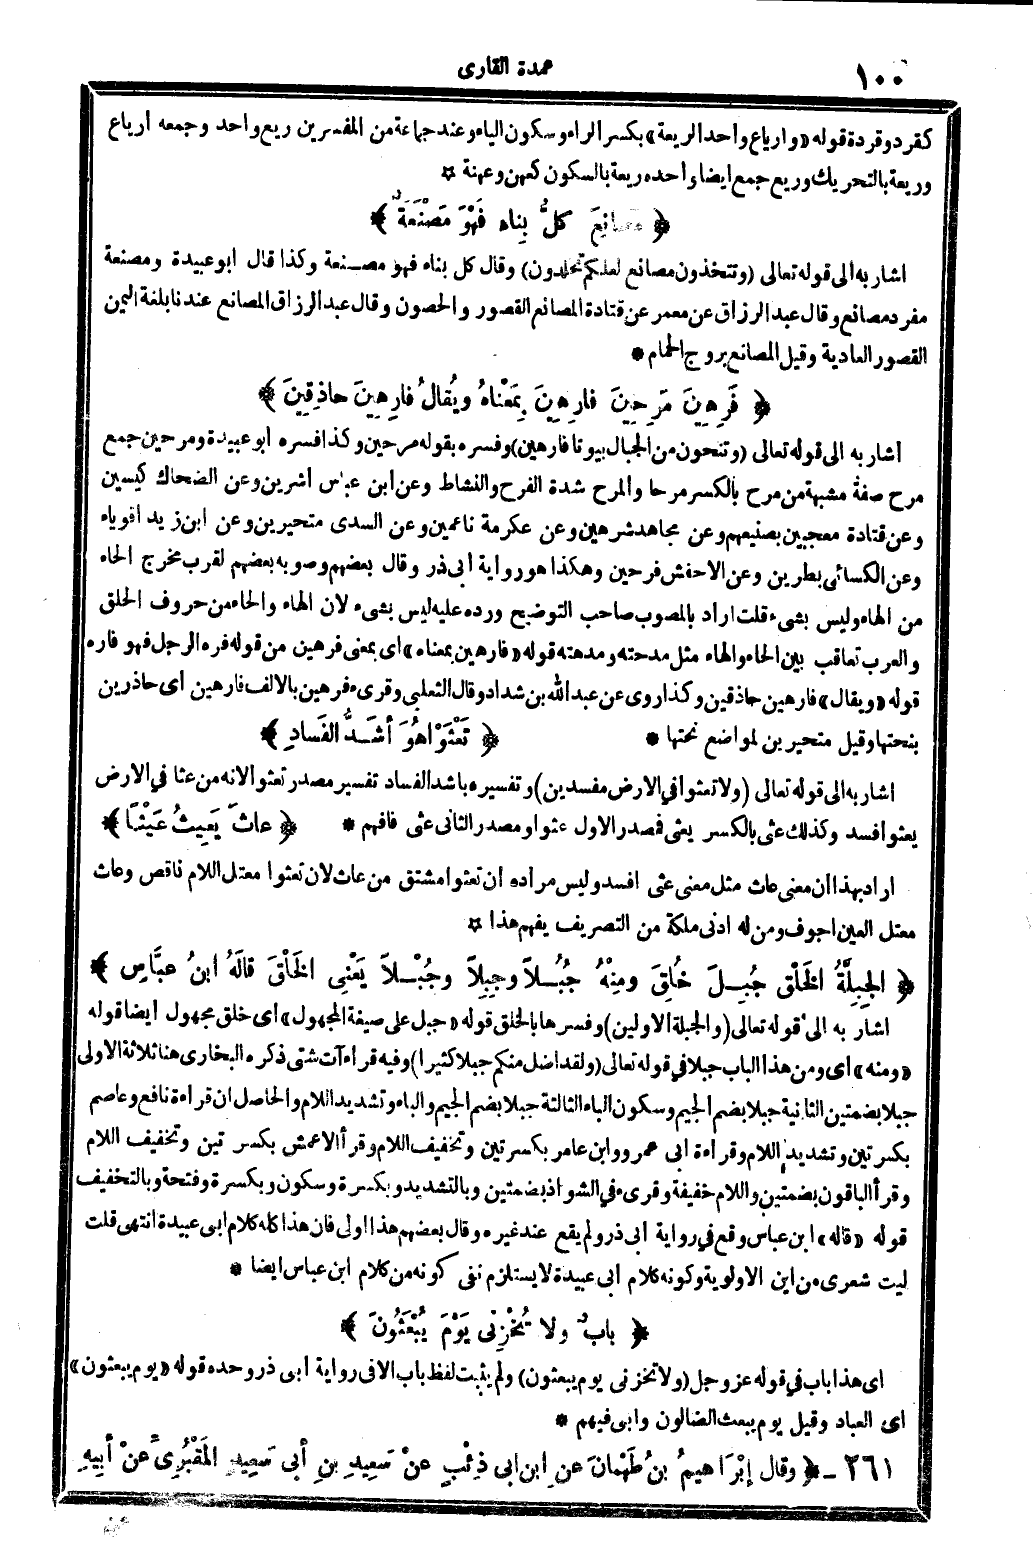 ١٠٠
عمدة القارى
كقرد وقردة قوله «وارياع واحد الريعة» بكسر الراء وسكون الياء وعند جماعة من المفسرين ريع واحد وجمعه ارياع
وريعة بالتحريك وريع جمع ايضا واحده ريعة بالسكون كعهن وعهنة ✩
﴿ مَصَانِعَ كلُّ بِناءٍ فَهْوَ مَصْنَعَةٌ ﴾
اشار به الى قوله تعالى (وتتخذون مصانع لعلكم تخلدون) وقال كل بناء فهو مصنعة وكذا قال ابو عبيدة ومصنعة
مفرد مصانع وقال عبد الرزاق عن معمر عن قتادة المصانع القصور والحصون وقال عبد الرزاق المصانع عندنا بلغة اليمن
القصور العادية وقيل المصانع بروج الحمام *
﴿ فَرِهِينَ مَرِحِينَ فارِهِينَ بِمَعْناهُ ويُقالُ فارِهِينَ حاذِقِينَ ﴾
اشار به الى قوله تعالى (وتنحتون من الجبال بيوتا فارهين) وفسره بقوله مرحين وكذا فسره ابو عبيدة ومرحين جمع
مرح صفة مشبهة من مرح بالكسر مرحا والمرح شدة الفرح والنشاط وعن ابن عباس اشرين وعن الضحاك كيسين
وعن قتادة معجبين بصنيعهم وعن مجاهد شرهين وعن عكرمة ناعمين وعن السدى متحيرين وعن ابن زيد اقوياء
وعن الكسائى بطرين وعن الاخفش فرحين وهكذا هو رواية ابى ذر وقال بعضهم وصوبه بعضهم لقرب مخرج الحاء
من الهاء وليس بشىء قلت اراد بالمصوب صاحب التوضيح ورده عليه ليس بشىء لان الهاء والحاء من حروف الحلق
والعرب تعاقب بين الحاء والهاء مثل مدحته ومدهته قوله «فارهين بمعناه» اى بمعنى فرهين من قوله فره الرجل فهو فاره
قوله «ويقال» فارهين حاذقين وكذا روى عن عبد الله بن شداد وقال الثعلبى وقرىء فرهين بالالف فارهين اى حاذرين
بنحتها وقيل متحيرين لمواضع نحتها * ﴿ تَعْثَوْا هُوَ أشَدُّ الفَسادِ ﴾
اشار به الى قوله تعالى (ولا تعثوا في الارض مفسدين) وتفسيره باشد الفساد تفسير مصدر تعثوا لانه من عثا في الارض
يعثو افسد وكذلك عثى بالكسر يعثى فمصدر الاول عثو او مصدر الثانى عثى فافهم * ﴿ عاثَ يَعِيثُ عَيْثًا ﴾
اراد بهذا ان معنى عاث مثل معنى عثى افسد وليس مراده ان تعثوا مشتق من عاث لان تعثوا معتل اللام ناقص وعاث
معتل العين اجوف ومن له ادنى ملكة من التصريف يفهم هذا ✩
﴿ الجِبِلَّةُ الخَلْق جُبِلَ خُلِقَ ومِنْهُ جُبُلاً وجِبِلاً وجُبْلاً يَعْنِى الخَلْقَ قالَهُ ابنُ عبَّاسٍ ﴾
اشار به الى قوله تعالى (والجبلة الاولين) وفسرها بالخلق قوله «جبل على صيغة المجهول» اى خلق مجهول ايضا قوله
«ومنه» اى ومن هذا الباب جبلا في قوله تعالى (ولقد اضل منكم جبلا كثيرا) وفيه قراءات شتى ذكره البخارى هنا ثلاثة الاولى
جبلا بضمتين الثانية جبلا بضم الجيم وسكون الباء الثالثة جبلا بضم الجيم والباء وتشديد اللام والحاصل ان قراءة نافع وعاصم
بكسرتين وتشديد اللام وقراءة ابى عمرو وابن عامر بكسرتين وتخفيف اللام وقرأ الاعمش بكسرتين وتخفيف اللام
وقرأ الباقون بضمتين واللام خفيفة وقرىء في الشواذ بضمتين وبالتشديد وبكسرة وسكون وبكسرة وفتحة وبالتخفيف
قوله «قاله» ابن عباس وقع في رواية ابى ذر ولم يقع عند غيره وقال بعضهم هذا اولى فان هذا كله كلام ابى عبيدة انتهى قلت
ليت شعرى من اين الاولوية وكونه كلام ابى عبيدة لا يستلزم نفى كونه من كلام ابن عباس ايضا *
﴿ بابٌ ولا تُخْزِنِى يَوْمَ يُبْعَثُونَ ﴾
اى هذا باب في قوله عز وجل (ولا تخزنى يوم يبعثون) ولم يثبت لفظ باب الا فى رواية ابى ذر وحده قوله «يوم يبعثون»
اى العباد وقيل يوم يبعث الضالون وابى فيهم *
٢٦١ - ﴿ وقال إبْرَاهيمُ بنُ طَهْمانَ عنِ ابنِ ابى ذِئْبٍ عنْ سَعِيدِ بنِ أبى سَعِيدٍ المَقْبُرِىِّ عنْ أبِيهِ